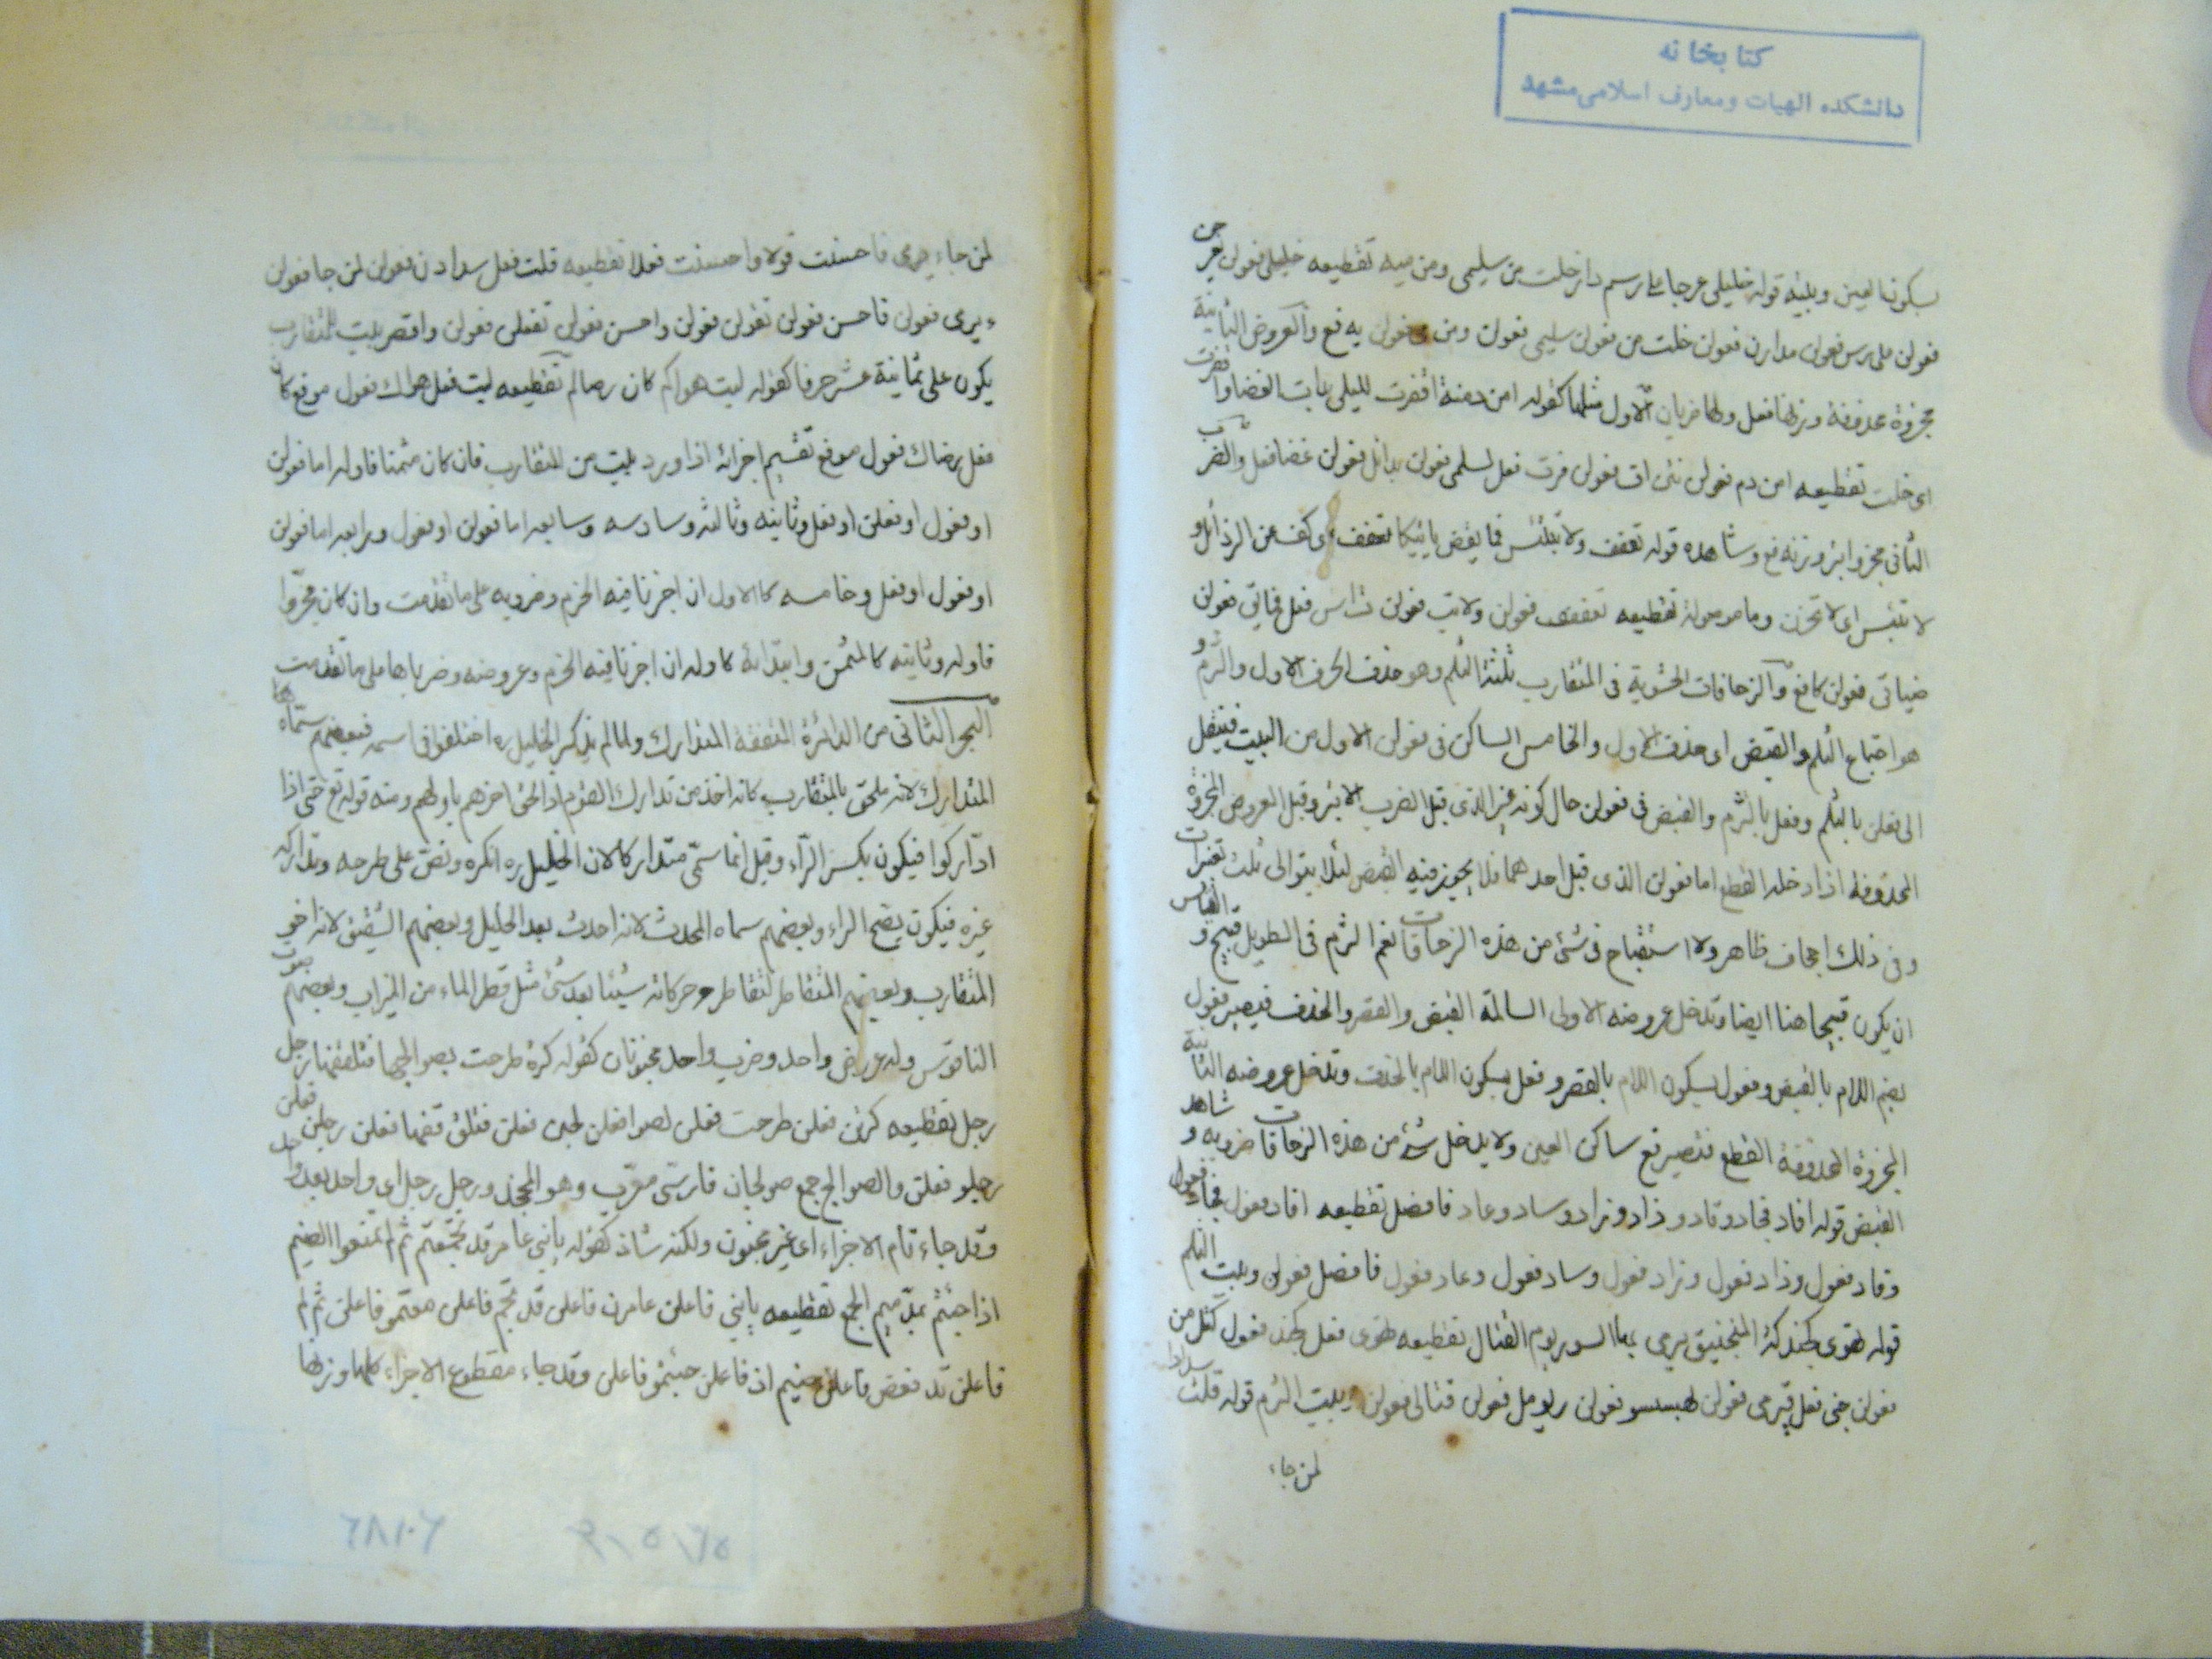 كتابخانه
دانشكده الهيات و معارف اسلامى مشهد
بسكون العين وبيته قوله خليلى عوجا على رسم دار خلت من سليمى ومن ميه تقطيعه خليلى فعولن
فعولن على رس فعولن مدارن فعولن خلت من فعولن سليمى فعولن ومن فعولن يه فع والعروض الثانية
مجزوة محذوفة وزنها فعل ولها ضربان الأول مثلها كقوله امن دمنة اقفرت لليلى بذات الغضا وا قفرت
اى خلت تقطيعه امن دم فعولن نتن اق فعولن فرت فعل لسلمى فعولن بذاتل فعولن غضا فعل والضرب
الثانى مجزو ابتر وزنه فع وشاهده قوله تعفف ولا تبتئس فما يقض ياتيكا تعفف اى كف عن الرذائل و
لا تبتئس اى لا تحزن وما موصولة تقطيعه تعففف فعولن ولا تب فعولن تئس فعل فماتى فعولن
ضياتى فعولن كا فع والزحافات الحشوية فى المتقارب ثلثة الثلم وهو حذف الحرف الاول والثرم و
هو اجتماع الثلم والقبض اى حذف الاول والخامس الساكن فى فعولن الاول من البيت فينقل
الى فعلن بالثلم وفعل بالثرم والقبض فى فعولن حال كونه غير الذى قبل الضرب الابتر وقبل العروض المجزوة
المحذوفة اذا دخله القطع اما فعولن الذى قبل احدهما فلا يجوز فيه القبض لئلا يتوالى ثلث تغيرات
وفى ذلك اجحاف ظاهر ولا استقباح فى شئ من هذه الزحافات نعم الثرم فى الطويل قبيح و القياس
ان يكون قبيحا هنا ايضا وتدخل عروضه الاولى السالمة القبض والقصر والحذف فيصير فعول
بضم اللام بالقبض وفعول بسكون اللام بالقصر وفعل بسكون اللام بالحذف وتدخل عروضه الثانية
المجزوة المحذوفة القطع فتصير فع ساكن العين ولا يدخل شئ من هذه الزحافات ضروبه و شاهد
القبض قوله افاد فجاد وقاد وذاد وزاد وساد وعاد فافضل تقطيعه افاد فعول فجاد فعول
وقاد فعول وذاد فعول وزاد فعول وساد فعول وعاد فعول فافضل فعولن وبيت الثلم
فعولن جنى فعل قيرمى فعولن فعولن ريومل فعولن قتالى فعولن وبيت الثرم قوله قلت سدادا
لمن جاء
لمن جاء يرى فاحسنت قولا واحسنت فعلا تقطيعه قلت فعل سدادن فعولن لمن جا فعولن
ءيرى فعولن فاحسن فعولن تقولن فعولن واحسن فعولن تفعلن فعولن واقصر بيت للمتقارب
يكون على ثمانية عشر حرفا كقوله ليت هواكم كان رضالم تقطيعه ليت فعل هواك فعول موفع كان
فعل رضاك فعول موفع تقسيم اجزائه اذا ورد بيت من المتقارب فان كان مثمنا فاوله اما فعولن
او فعول او فعلن او فعل وثانيه وثالثه وسادسه وسابعه اما فعولن او فعول ورابعه اما فعولن
او فعول او فعل وخامسه كالاول ان اجزنا فيه الخرم وضروبه على ما تقدمت وان كان مجزوا
فاوله وثانيه كالمثمن وابتدائه كاوله ان اجزنا فيه الخرم وعروضه وضرباها على ما تقدمت
البحر الثانى من الدائرة المتفقة المتدارك ولما لم يذكره الخليل ره اختلفوا فى اسمه فبعضهم سماه
المتدارك لانه ملحق بالمتقارب كانه اخذ من تدارك القوم اذا لحق اخرهم باولهم ومنه قوله تع حتى اذا
ادّاركوا فيكون بكسر الراء وقيل انما سمى متداركا لان الخليل ره انكره ونص على طرحه وتداركه
غيره فيكون بفتح الراء وبعضهم سماه المحدث لانه احدث بعد الخليل وبعضهم الشقيق لانه اخو
المتقارب وبعضهم المتقاطر لتقاطر حركاته شيئا بعد شئ مثل قطر الماء من الميزاب وبعضهم صوت
الناقوس وله عروض واحد وضرب واحد مخبونان كقوله كرة طرحت بصوالجها فتلقفها رجل
رجل تقطيعه كرتن فعلن طرحت فعلن بصوا فعلن لجهى فعلن فتلق فعلن قفها فعلن رجلن فعلن
رجلو فعلن والصوالج جمع صولجان فارسى معرب وهو المحجن ورجل رجل اى واحد بعد واحد
وقد جاء تام الاجزاء اى غير مخبون ولكنه شاذ كقوله يا بنى عامر قد تجمعتم ثم لم تمنعوا الضيم
اذ جئتم بمد ميم الجمع تقطيعه يا بنى فاعلن عامرن فاعلن قد تجم فاعلن معتمو فاعلن ثم لم
فاعلن تدفعض فاعلن ضيم اذ فاعلن جئتمو فاعلن وقد جاء مقطوع الاجزاء كلها وزنها